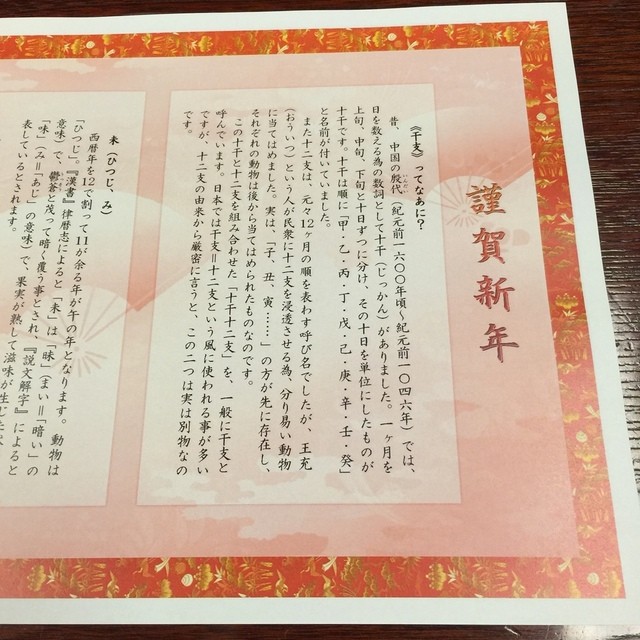 謹賀新年
《干支》ってなあに？
昔、中国の殷代（紀元前一六〇〇年頃〜紀元前一〇四六年）では、
日を数える為の数詞として十干（じっかん）がありました。一ヶ月を
上旬、中旬、下旬と十日ずつに分け、その十日を単位にしたものが
十干です。十干は順に「甲・乙・丙・丁・戊・己・庚・辛・壬・癸」
と名前が付いていました。
また十二支は、元々12ヶ月の順を表わす呼び名でしたが、王充
（おういつ）という人が民衆に十二支を浸透させる為、分り易い動物
に当てはめました。実は、「子、丑、寅……」の方が先に存在し、
それぞれの動物は後から当てはめられたものなのです。
この十干と十二支を組み合わせた「十干十二支」を、一般に干支と
呼んでいます。日本では干支＝十二支という風に使われる事が多い
ですが、十二支の由来から厳密に言うと、この二つは実は別物なの
です。
未（ひつじ、み）
西暦年を12で割って11が余る年が午の年となります。動物は
「ひつじ」。『漢書』律暦志によると「未」は「昧」（まい＝「暗い」の
意味）で、鬱蒼と茂って暗く覆う事とされ、『説文解字』によると
「味」（み＝「あじ」の意味）で、果実が熟して滋味が生じた
表しているとされます。